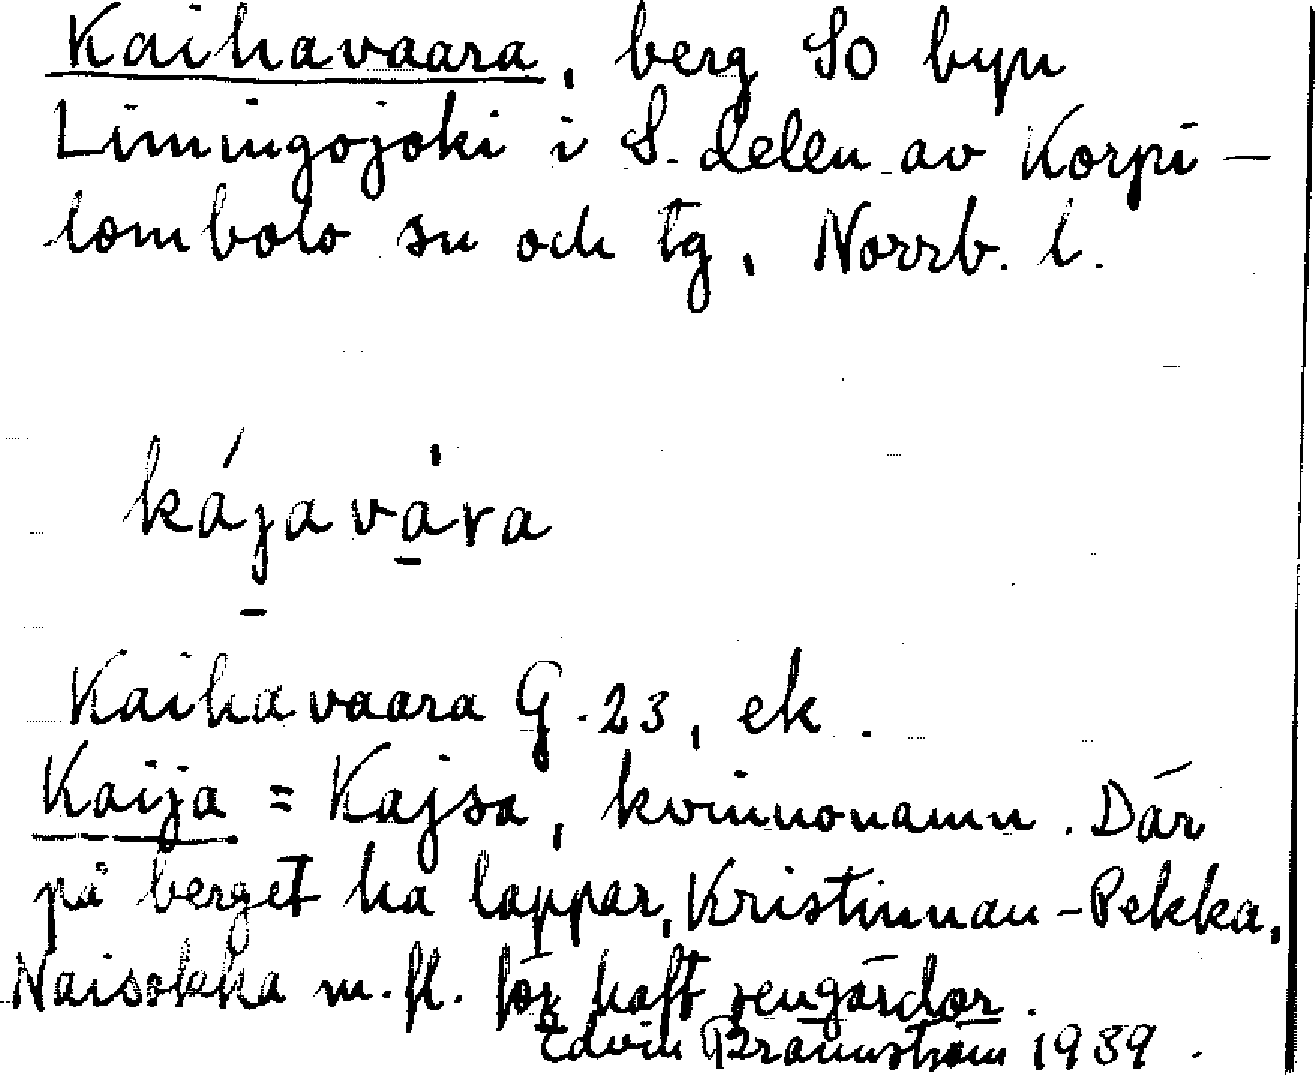 Kaihavaara, berg SO byn
Limingojoki i S. delen av Korpi-
lombolo sn och tg, Norrb. l.
kájavàra
Kaihavaara G. 23, ek.
Kaija = Kajsa, kvinnonamn. Där
på berget ha lappar, Kristinnan-Pekka,
Naisokka m.fl. för haft rengärdor.
Edvin Brännström 1939.